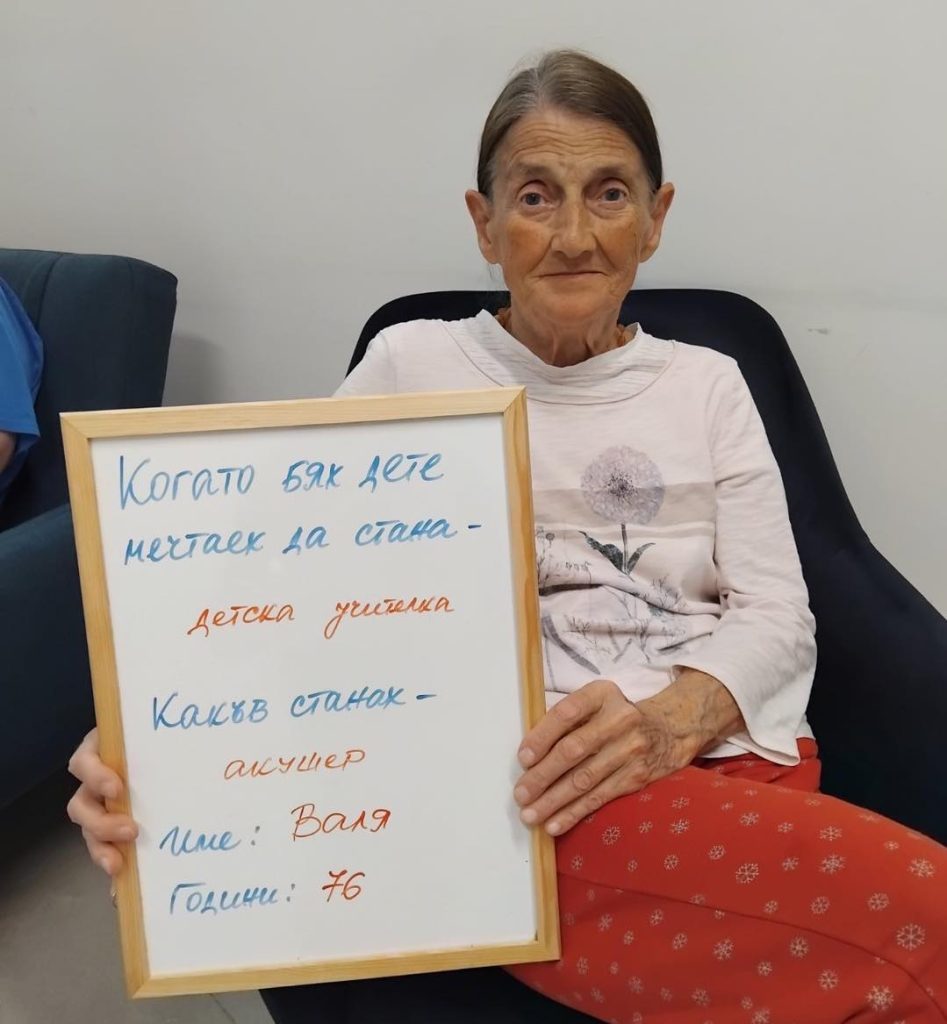 Когато бях дете
мечтаех да стана -
детска учителка
Какъв станах -
акушер
Име: Валя
Години: 76